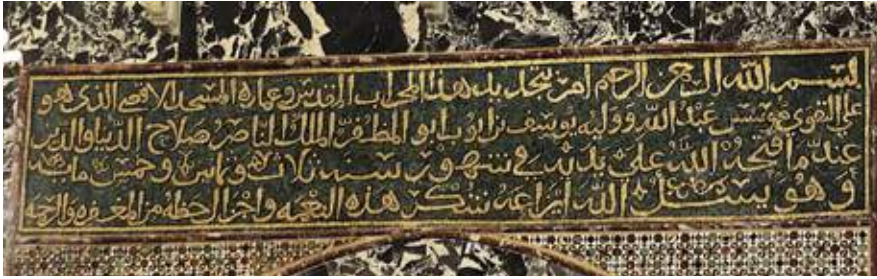 بسم الله الرحمن الرحيم امر بتجديد هذا المحراب المقدس وعمارة المسجد الاقصى الذي هو
على التقوى مؤسس عبد الله ووليه يوسف بن ايوب ابو المظفر الملك الناصر صلاح الدنيا والدين
عند ما فتحه الله على يديه في شهور سنة ثلاث وثمانين وخمس مايه
وهو يسئل الله ايزاعه شكر هذه النعمة واجزال حظه من المغفرة والرحمة